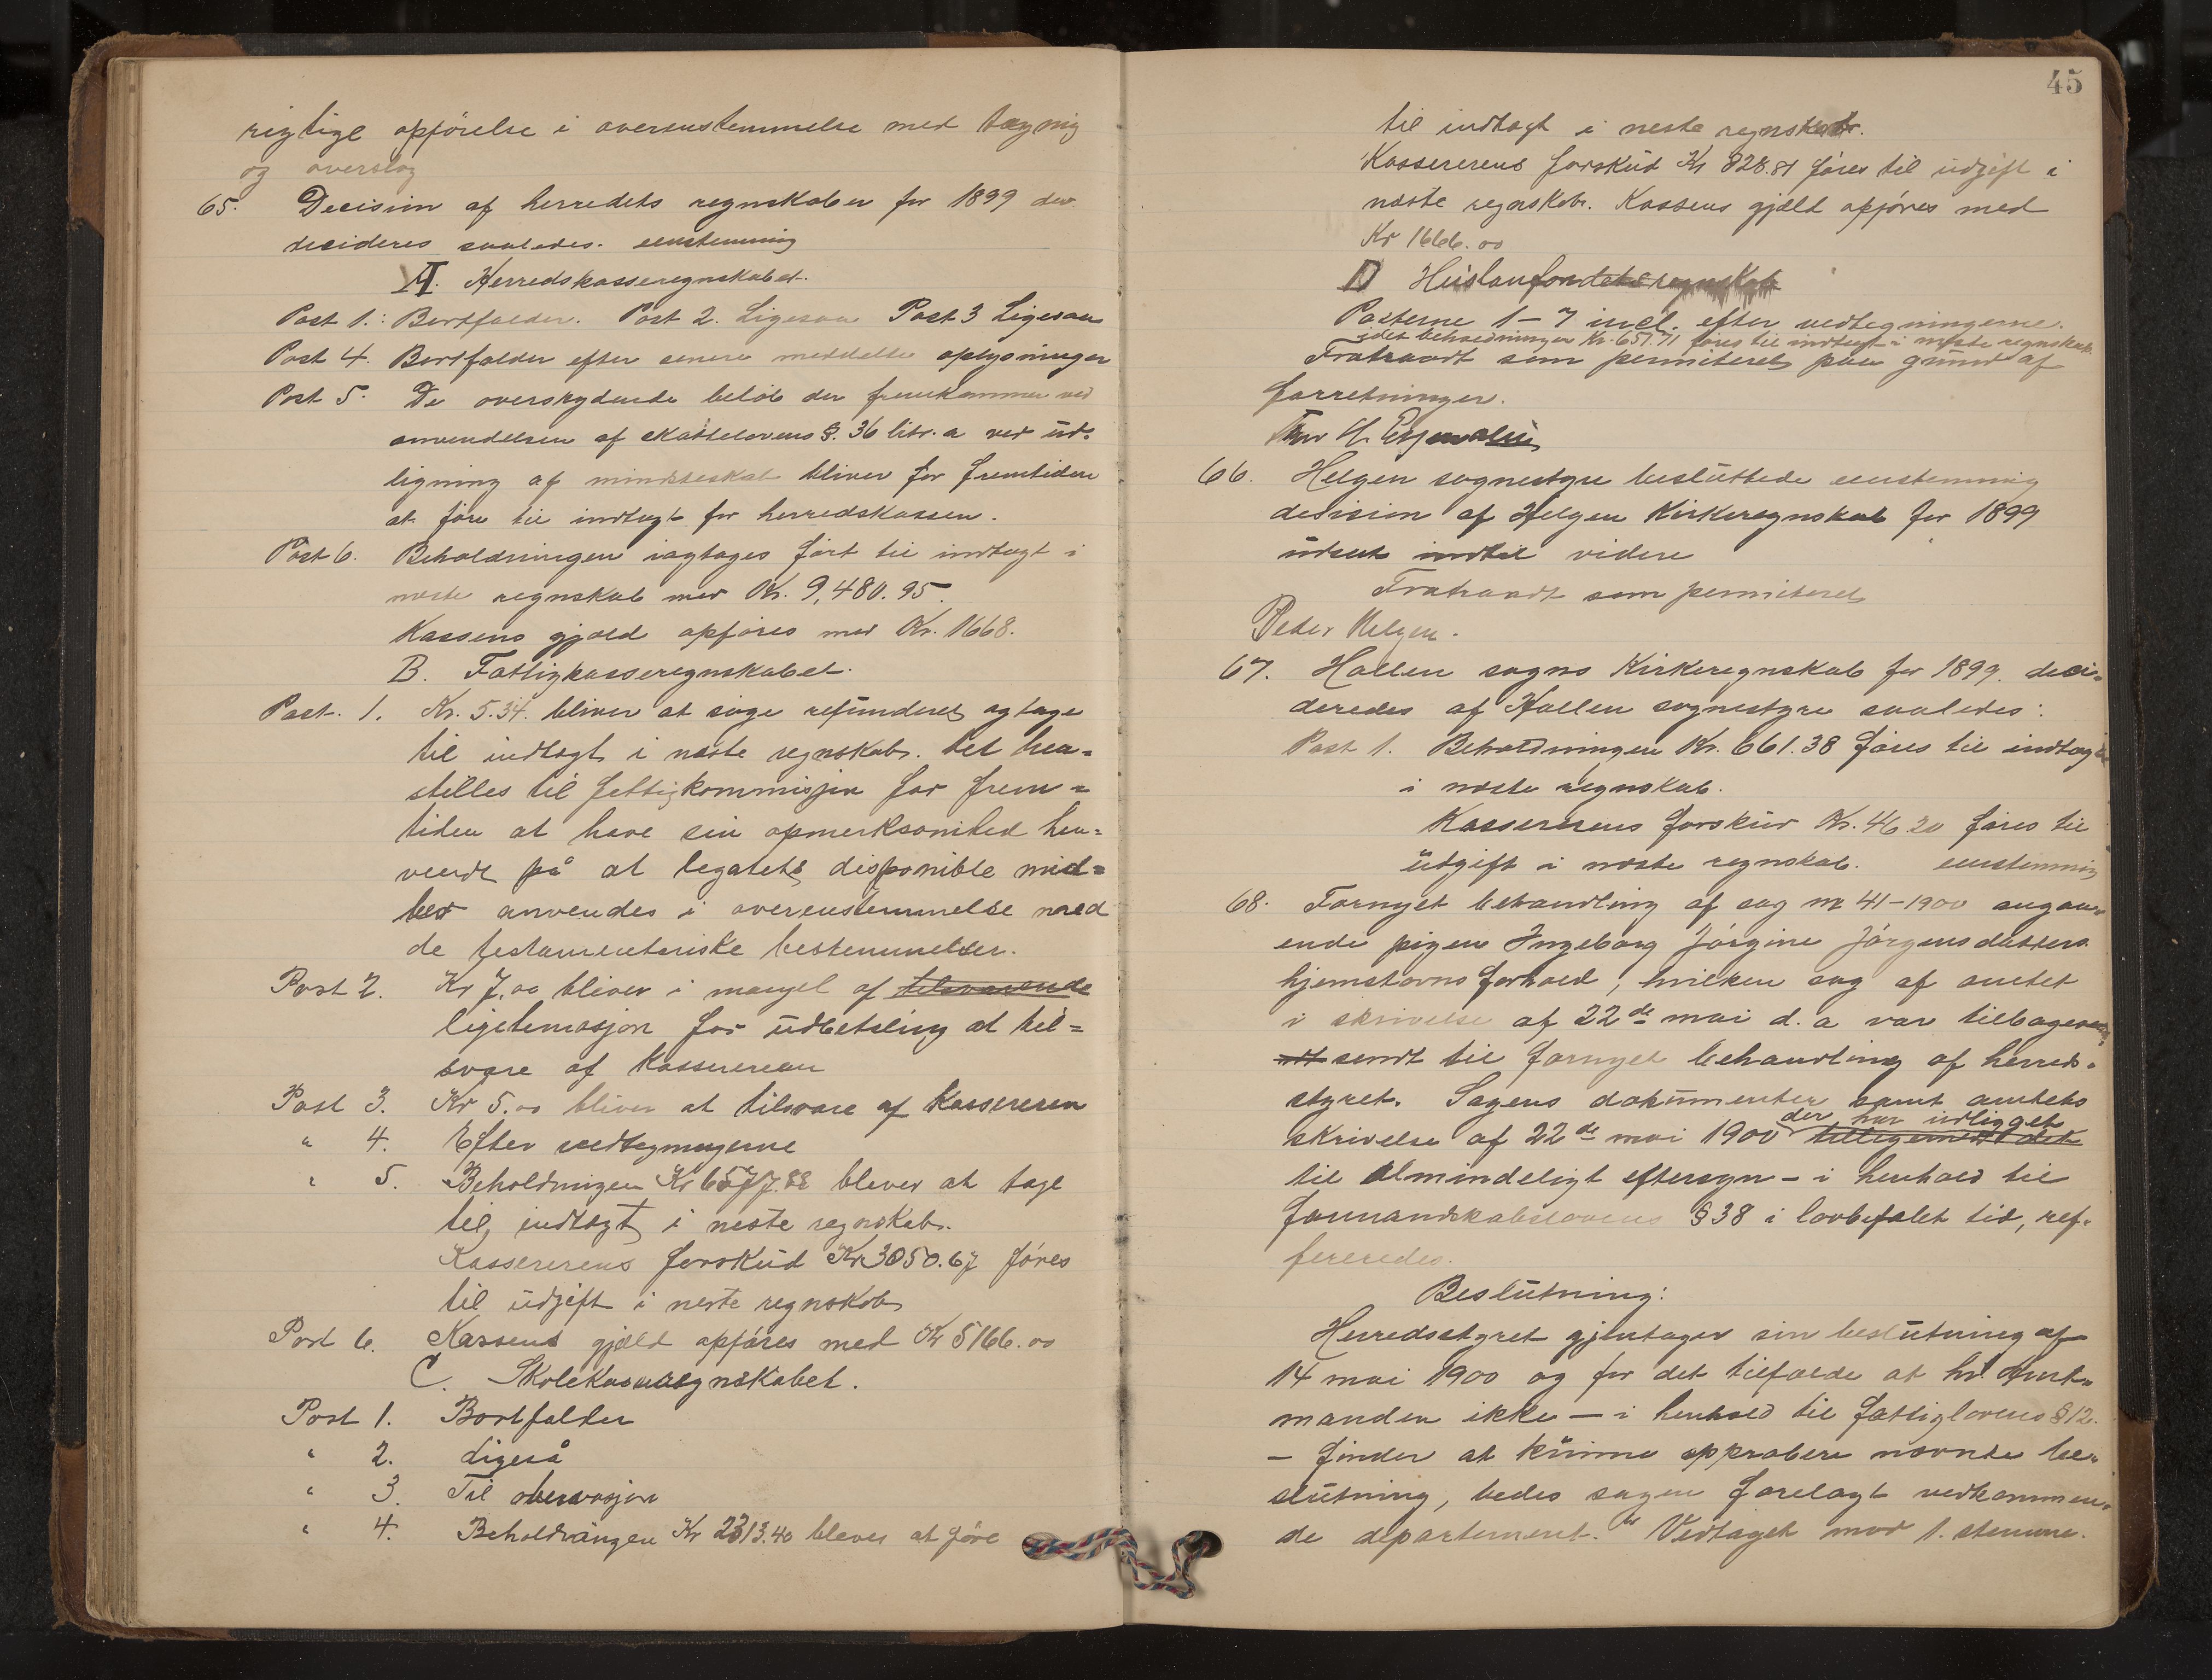 rigtige opförelse i overenstemmelse med tegning
og overslag
65. Decision af herredets regnskaber for 1899 der
decideres saaledes. eenstemmig
A. Herredskasseregnskabet.
Post 1.: Bortfalder. Post 2. Ligesaa Post 3 Ligesaa
Post 4. Bortfalder efter senere meddelte oplysninger
Post 5. De overskydende beløb der fremkommer ved
anvendelsen af skattelovens §. 36 litr. a ved üd-
ligning af mindsteskat bliver for fremtiden
at före til indtægt for herredskassen.
Post 6. Beholdningen iagtages fört til indtægt i
næste regnskab med Kr. 9,480.95.
Kassens gjæld opføres med Kr. 1668.
B. Fattigkasseregnskabet.
Post. 1. Kr. 5.34. bliver at söge refunderet og tage
til indtægt i næste regnskab. Det hen=
stilles til fattigkommisjon for frem=
tiden at have sin opmerksomhed hen=
vendt på at legatets disponible mid=
ler anvendes i overenstemmelse med
de testamentariske bestemmelser.
Post 2. Kr 7,00 bliver i mangel af tilsvarende
legitimasjon for üdbetaling at til=
svare af Kassereren
Post 3. Kr 5.00 bliver at tilsvare af Kassereren
" 4. Efter vedtegningerne
" 5. Beholdningen Kr 6577.88 blever at tage
til indtægt i neste regnskab.
Kassererens forskud Kr 3050.67 föres
til üdgift i neste regnskab
Post 6. Kassens gjæld opføres med Kr 5166.00
C. Skolekasseregnskabet.
Post 1. Bortfalder
" 2. Ligeså
" 3. Til observasjon
" 4. Beholdningen Kr 2313.40 blever at före
45
til indtægt i neste regnskab.
Kassererens forskud Kr 828.81 föres til üdgift i
næste regnskab. Kassens gjæld opføres med
Kr 1666.00
D Huslaanfondets regnskab
Posterne 1-7 incl. efter vedtegningerne.
idet beholdningen Kr. 651.71 föres til indtægt i næste regnskab
Fratraadt som permiteret paa grund af
forretninger.
66. Helgen sognestyre besluttede eenstemmig
decision af Helgen Kirkeregnskab for 1899
üdsat indtil videre
Fratraadt som permiteret
Peder Helgen.
67. Hollen sogns Kirkeregnskab for 1899 deci-
deredes af Hollen sognestyre saaledes:
Post 1. Beholdningen Kr. 661.38 föres til indtægt
i næste regnskab.
Kassererens forskud Kr. 46.20 föres til
üdgift i næste regnskab. eenstemmig
68. Fornyet behandling af sag nr 41-1900 angaa-
ende pigen Ingeborg Jörgine Jörgensdatters
hjemstavnsforhold, hvilken sag af amtet
i skrivelse af 22de mai d. a var tilbage
sendt til fornyet behandling af herreds-
styret. Sagens dokumenter samt amtets
skrivelse af 22de mai 1900 tilligemed det
der har udligget
til almindeligt eftersyn - i henhold til
formandskabslovens § 38 i lovbefalet tid, ref-
fereredes.
Beslütning:
Herredsstyret gjentager sin beslütning af
14 mai 1900 og for det tilfælde at hr Amt-
manden ikke - i henhold til fattiglovens § 12.
- finder at künne approbere nævnte be-
slütning, bedes sagen forelagt vedkommen-
de departement. Vedtaget mod 1. stemme.